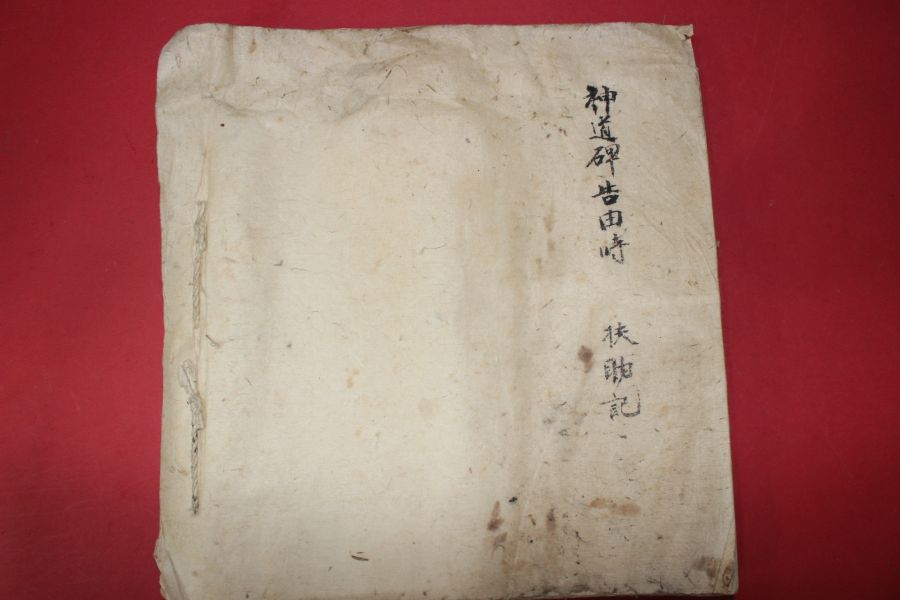 神道碑告由時 扶助記